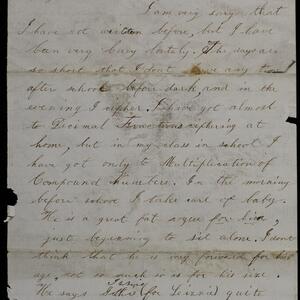 I am very sorry that
I have not written before, but I have
been very busy lately. The days are
so short that I don't have any time
after school before dark, and in the
evening I cipher. I have got almost
to Decimal Fractions ciphering at
home, but in my class in school I
have got only to Multiplication of
Compound Numbers. In the morning
before school I take care of baby.
He is a great fat
just beginning to sit alone. I don't
think that he is very forward for his
age, not so much so as for his size.
He says (for Lizzie) quite